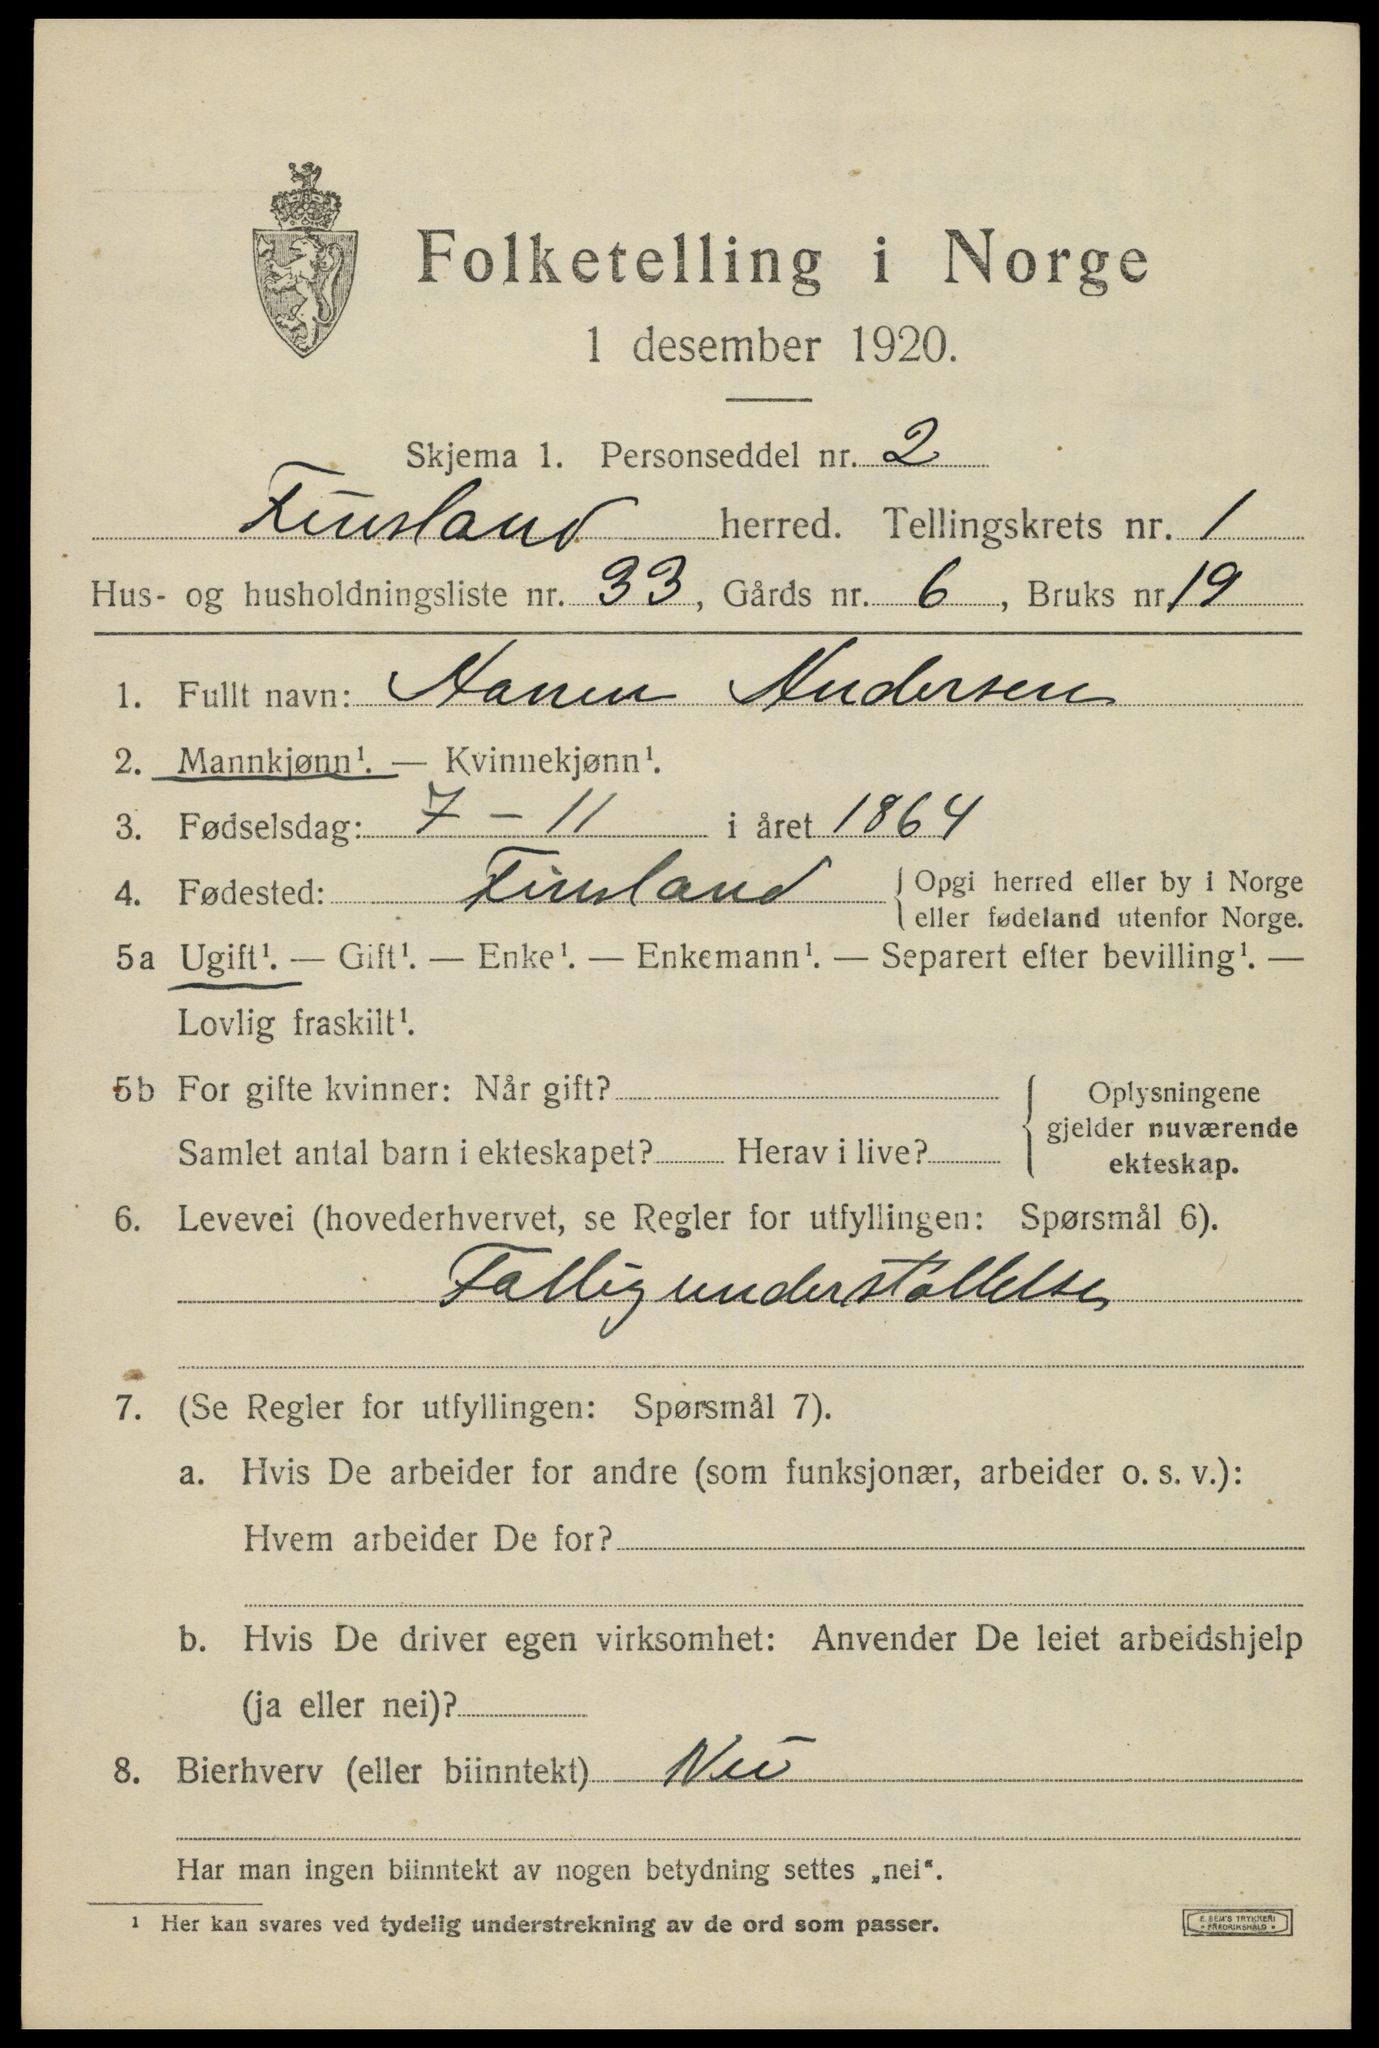 Folketelling i Norge
1 desember 1920.
Skjema 1. Personseddel nr. 2
Finsland herred. Tellingskrets nr. 1
Hus- og husholdningsliste nr. 33, Gårds nr. 6, Bruks nr. 19
1. Fullt navn: Andersen
2. Mannkjønn¹. — Kvinnekjønn¹.
3. Fødselsdag: 7 - 11 i året 1864
4. Fødested: Finsland { Opgi herred eller by i Norge
eller fødeland utenfor Norge.
5a Ugift¹. — Gift¹. — Enke¹. — Enkemann¹. — Separert efter bevilling¹. —
Lovlig fraskilt¹.
5b For gifte kvinner: Når gift?
Samlet antal barn i ekteskapet? Herav i live?
Oplysningene
gjelder nuværende
ekteskap.
6. Levevei (hovederhvervet, se Regler for utfyllingen: Spørsmål 6).
Fattigunderstøttelse
7. (Se Regler for utfyllingen: Spørsmål 7).
a. Hvis De arbeider for andre (som funksjonær, arbeider o. s. v.):
Hvem arbeider De for?
b. Hvis De driver egen virksomhet: Anvender De leiet arbeidshjelp
(ja eller nei)?
8. Bierhverv (eller biinntekt) Nei
Har man ingen biinntekt av nogen betydning settes „nei“.
¹ Her kan svares ved tydelig understrekning av de ord som passer.
E. SEM'S TRYKKERI
• FREDRIKSHALD •